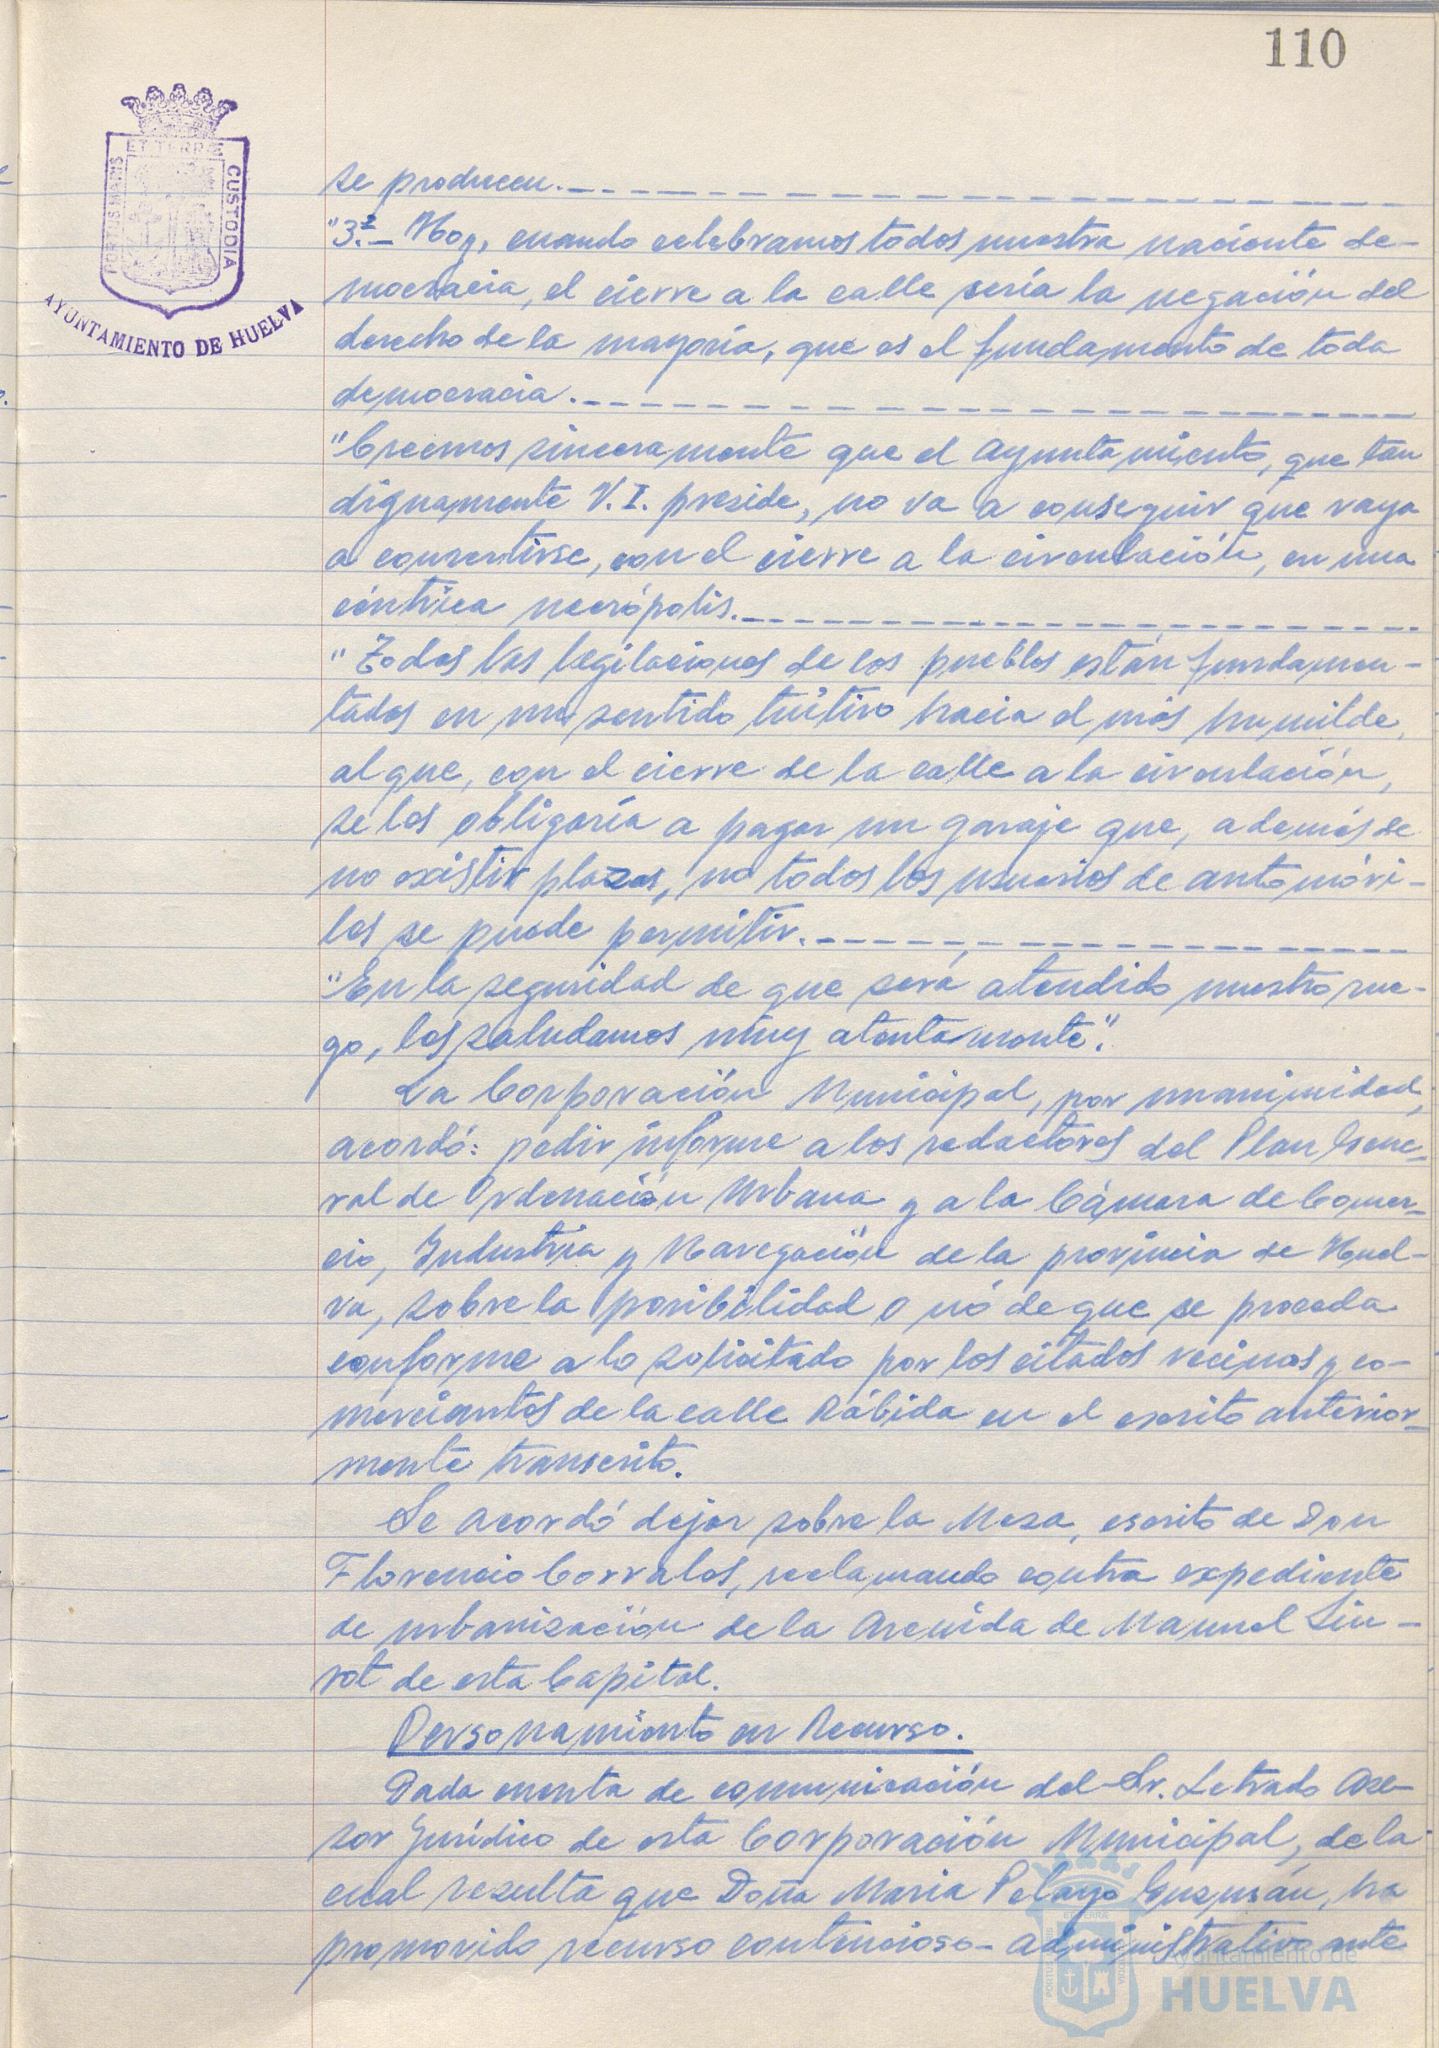 110
ET TERRÆ
PORTUS MARIS
CUSTODIA
AYUNTAMIENTO DE HUELVA
se producen.
"3ª.- Hoy, cuando celebramos todos nuestra naciente de-
mocracia, el cierre a la calle sería la negación del
derecho de la mayoría, que es el fundamento de toda
democracia.
"Creemos sinceramente que el Ayuntamiento, que tan
dignamente V.I. preside, no va a conseguir que vaya
a convertirse, con el cierre a la circulación, en una
céntrica necrópolis.
"Todas las legilaciones de los pueblos están fundamen-
tados en un sentido tuitivo hacia el más humilde,
al que, con el cierre de la calle a la circulación,
se les obligaría a pagar un garaje que, además de
no existir plazas, no todos los usuarios de automóvi-
les se puede permitir.
"En la seguridad de que será atendido nuestro rue-
go, les saludamos muy atentamente".
La Corporación Municipal, por unanimidad,
acordó: pedir informe a los redactores del Plan Gene-
ral de Ordenación Urbana y a la Cámara de Comer-
cio, Industria y Navegación de la provincia de Huel-
va, sobre la posibilidad o nó de que se proceda
conforme a lo solicitado por los citados vecinos y co-
merciantes de la calle Rábida en el escrito anterior-
mente transcrito.
Se acordó dejar sobre la Mesa, escrito de Don
Florencio Corrales, reclamando contra expediente
de urbanización de la Avenida de Manuel Siu-
rot de esta Capital.
Personamiento en Recurso.
Dada cuenta de comunicación del Sr. Letrado Ase-
sor Jurídico de esta Corporación Municipal, de la
cual resulta que Doña Maria Pelayo Guzmán, ha
promovido recurso contencioso-administrativo ante
Ayuntamiento de
HUELVA